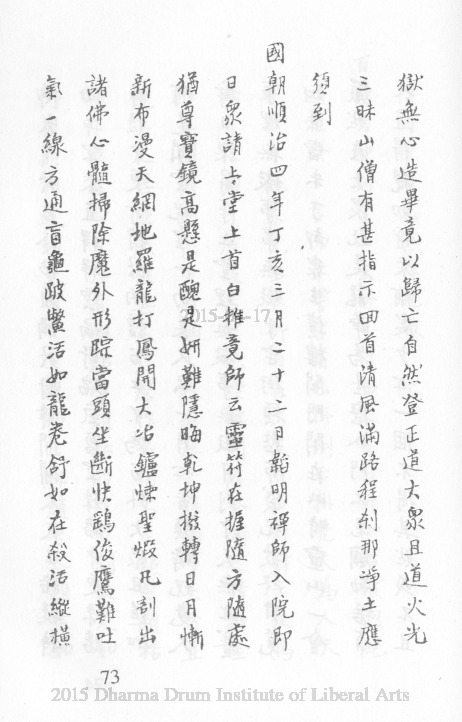 獄無心造畢竟以歸亡自然登正道大眾且道火光
三昧山僧有甚指示回首清風滿路程剎那淨土應
須到
國朝順治四年丁亥三月二十二日韜明禪師入院即
日眾請上堂上首白椎竟師云靈符在握隨方隨處
猶尊寶鏡高懸是醜是妍難隱晦乾坤撥轉日月漸
新布漫天網地羅龍打鳳開大冶鑪煉聖煅凡剖出
諸佛心髓掃除魔外形踪當頭坐斷快鷂俊鷹難吐
氣一線方通盲龜跛鱉活如龍卷舒如在殺活縱橫
73
2015 Dharma Drum Institute of Liberal Arts